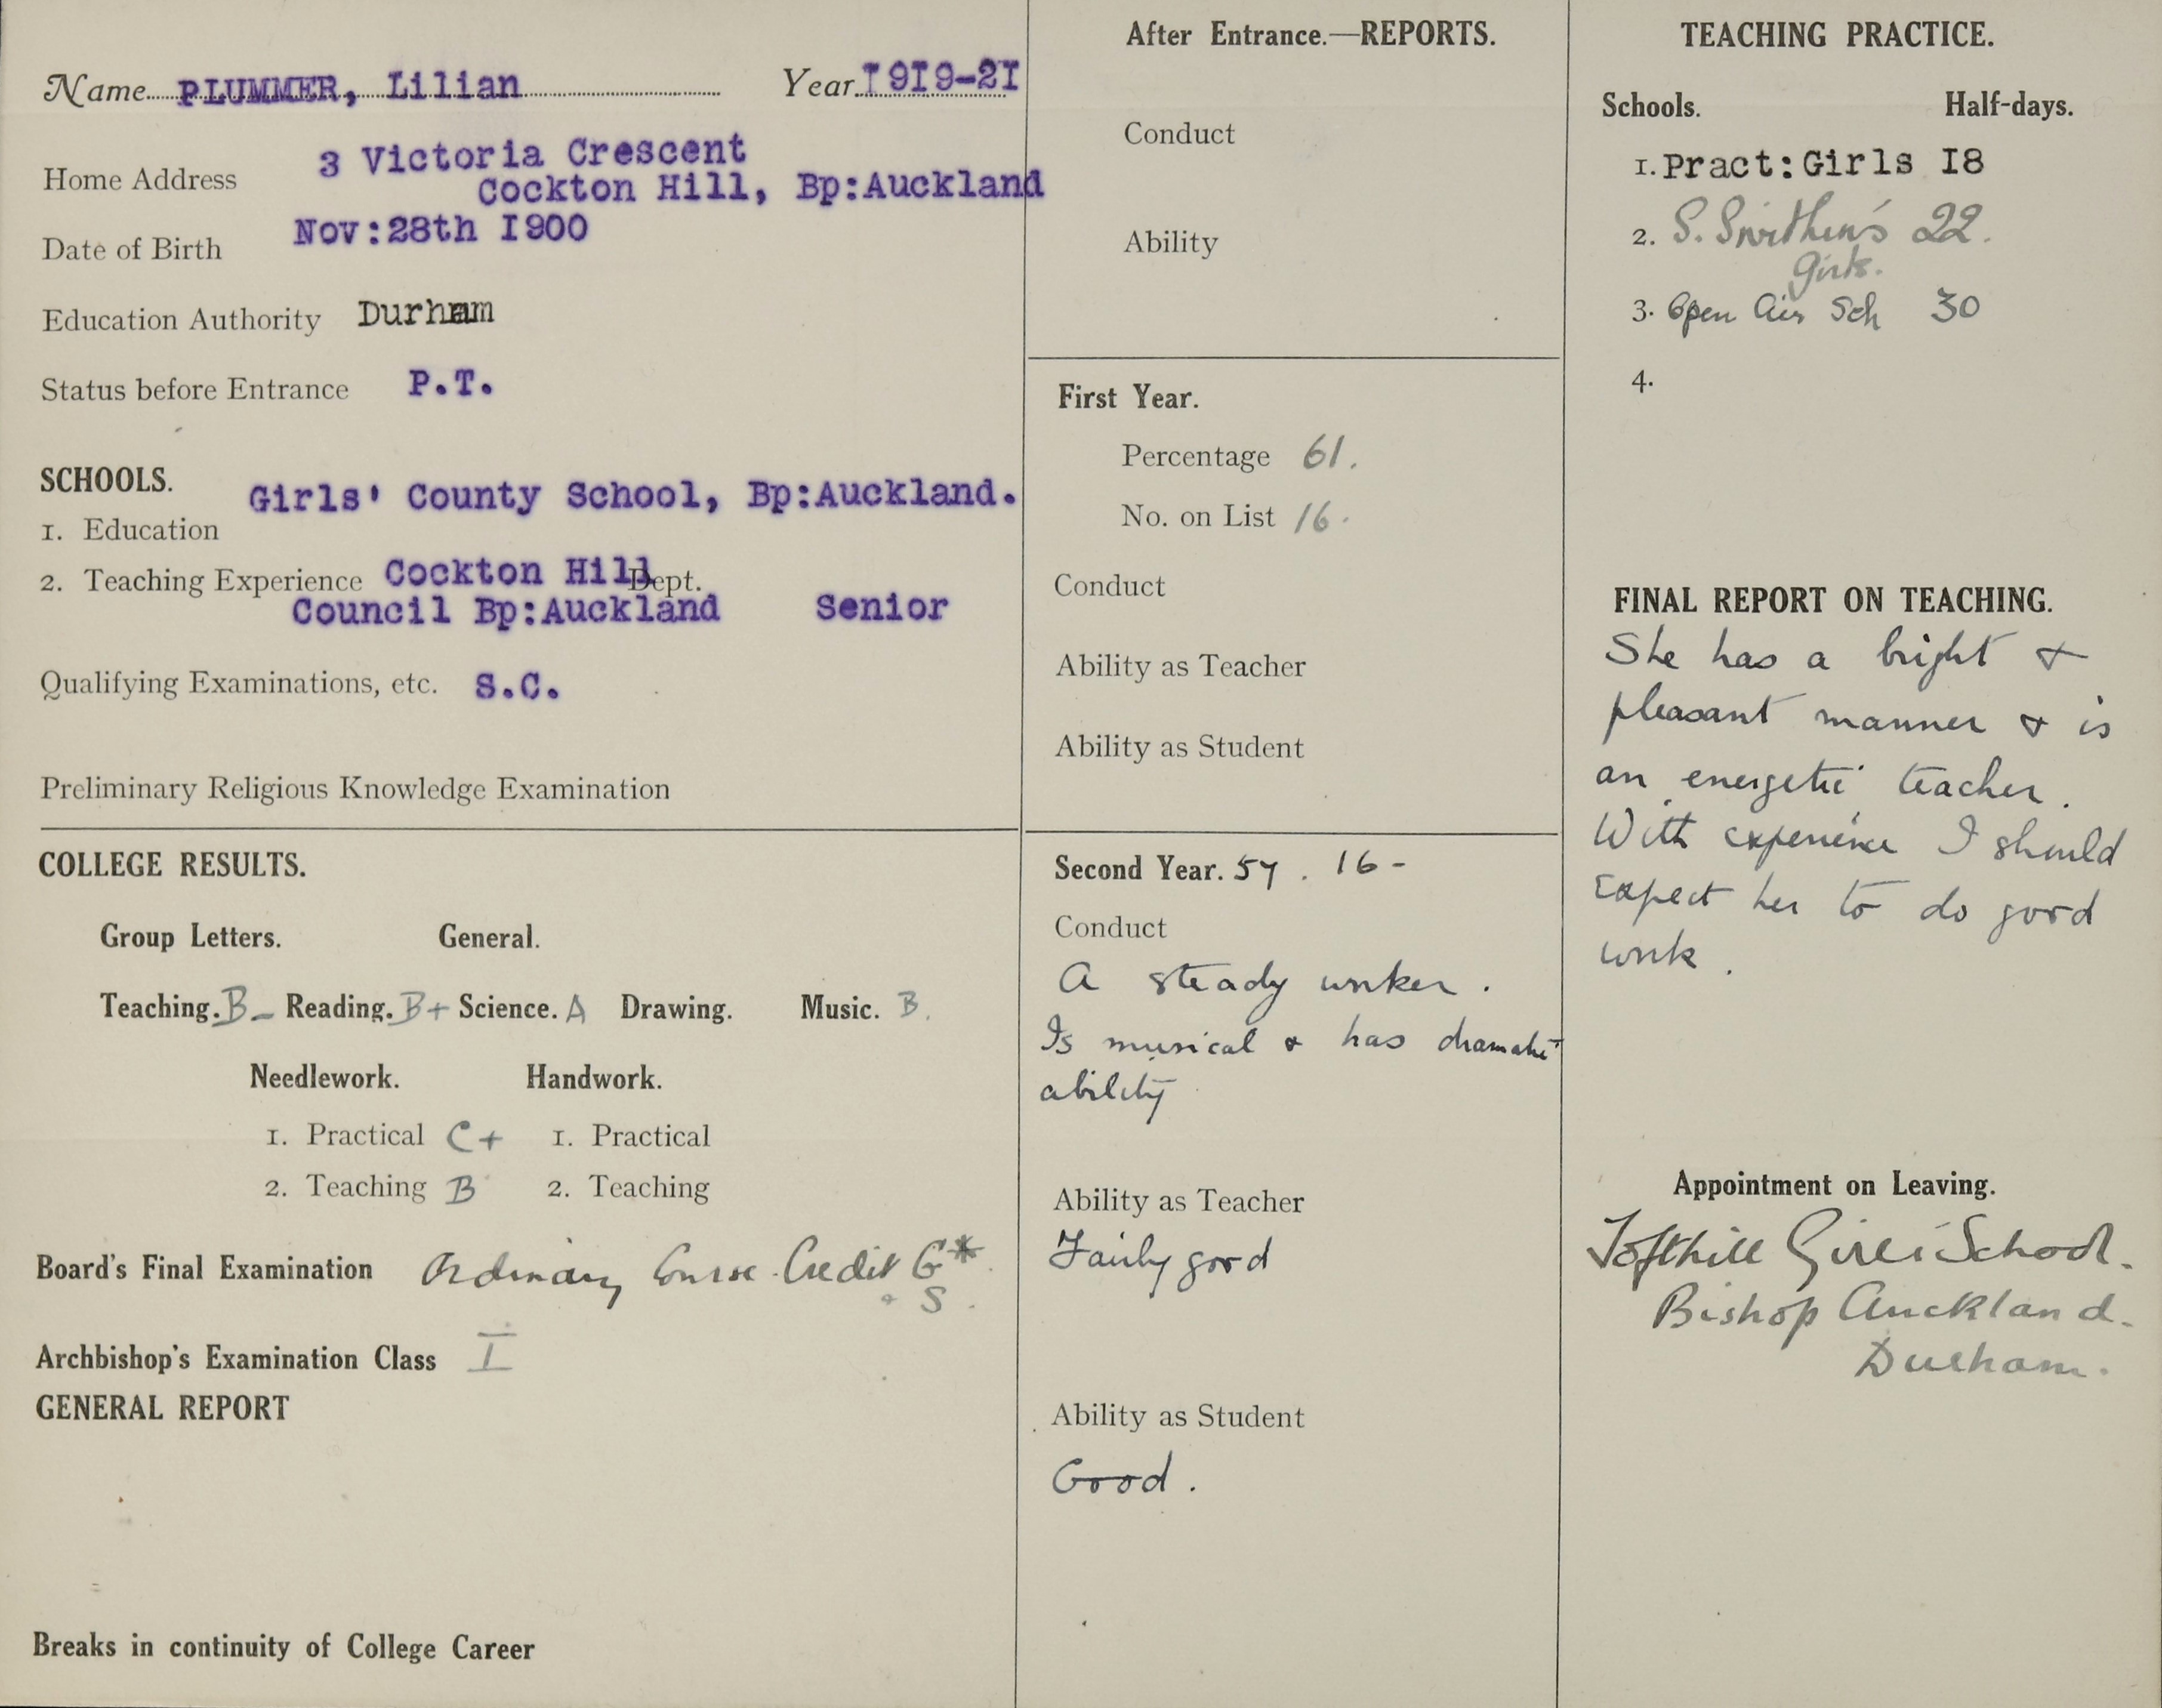 Name PLUMMER, Lilian Year I9I9-2I
Home Address 3 Victoria Crescent
Cockton Hill, Bp:Auckland
Date of Birth Nov:28th I900
Education Authority Durham
Status before Entrance P.T.
SCHOOLS.
1. Education Girls' County School, Bp:Auckland.
2. Teaching Experience Cockton Hill Dept.
Council Bp:Auckland Senior
Qualifying Examinations, etc. S.C.
Preliminary Religious Knowledge Examination
COLLEGE RESULTS.
Group Letters. General.
Teaching. B- Reading. B+ Science. A Drawing. Music. B.
Needlework. Handwork.
1. Practical C+ 1. Practical
2. Teaching B 2. Teaching
Board's Final Examination Ordinary Course. Credit G*.
+ S.
Archbishop's Examination Class I
GENERAL REPORT
Breaks in continuity of College Career
After Entrance.—REPORTS.
Conduct
Ability
First Year.
Percentage 61.
No. on List 16.
Conduct
Ability as Teacher
Ability as Student
Second Year. 57. 16-
Conduct
A steady worker.
Is musical & has dramatic
ability
Ability as Teacher
Fairly good
Ability as Student
Good.
TEACHING PRACTICE.
Schools. Half-days.
1. Pract:Girls I8
2. S. Swithin's 22.
Girls.
3. Open Air Sch 30
4.
FINAL REPORT ON TEACHING.
She has a bright &
pleasant manner & is
an energetic teacher.
With experience I should
expect her to do good
work.
Appointment on Leaving.
Tofthill Girls' School.
Bishop Auckland.
Durham.